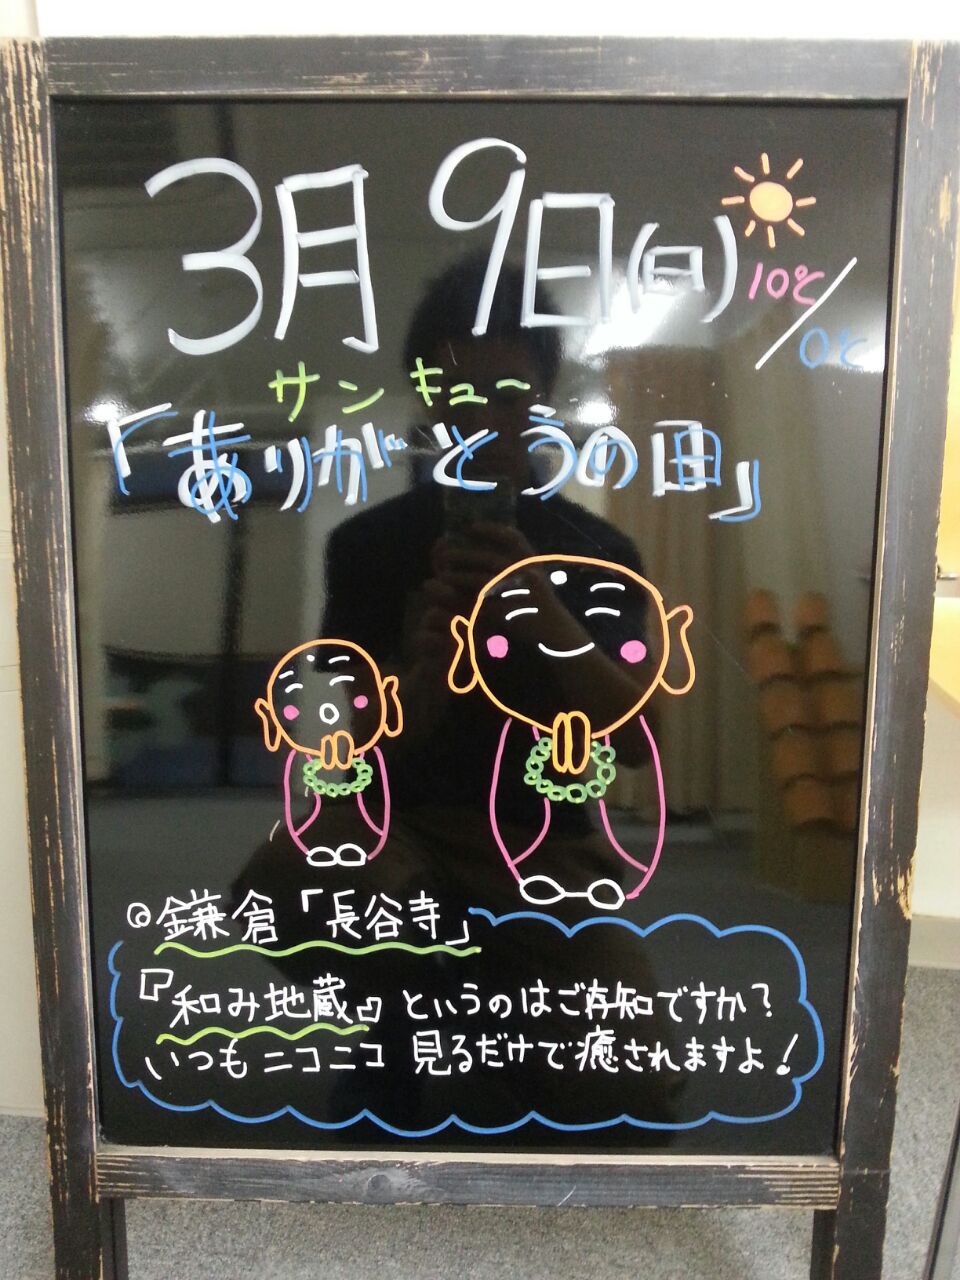 3月9日(日)
10℃/0℃
サンキュー
「ありがとうの日」
◎鎌倉「長谷寺」
『和み地蔵』というのはご存知ですか?
いつもニコニコ見るだけで癒されますよ!